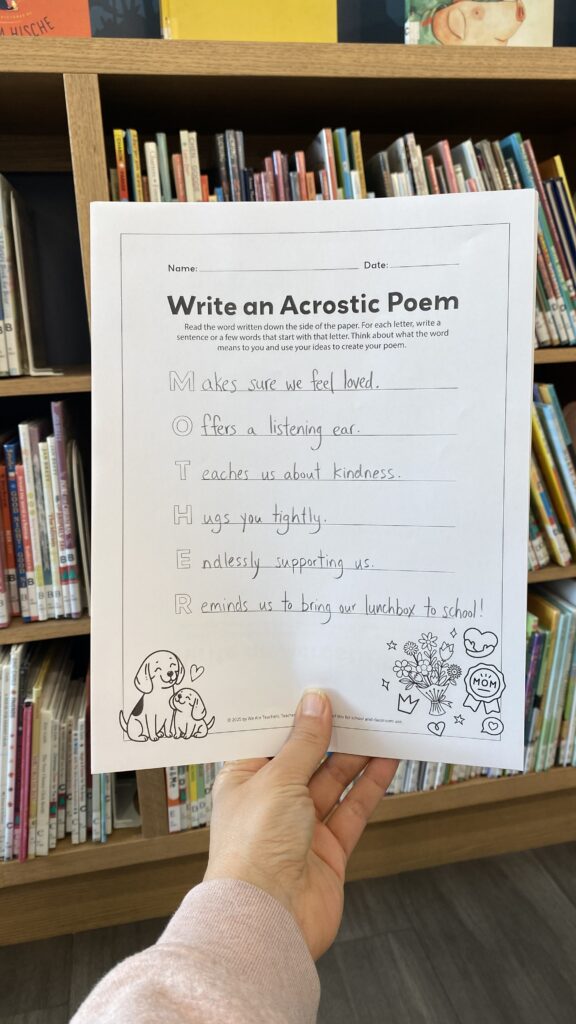 HISCHE
Name: Date:
Write an Acrostic Poem
Read the word written down the side of the paper. For each letter, write a
sentence or a few words that start with that letter. Think about what the word
means to you and use your ideas to create your poem.
Makes sure we feel loved.
Offers a listening ear.
Teaches us about kindness.
Hugs you tightly.
Endlessly supporting us.
Reminds us to bring our lunchbox to school!
MOM
© 2025 by We Are Teachers. for school and classroom use.